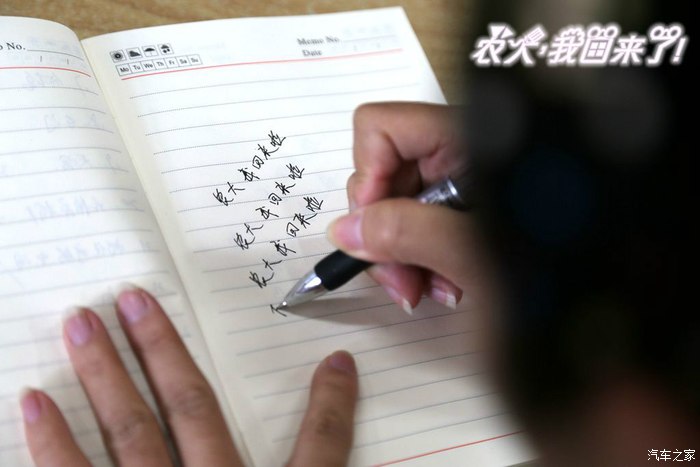 o No.
Memo No.
Date / /
Mo Tu We Th Fr Sa Su
农大，我回来了！
农大我回来啦
农大我回来啦
农大我回来啦
汽车之家